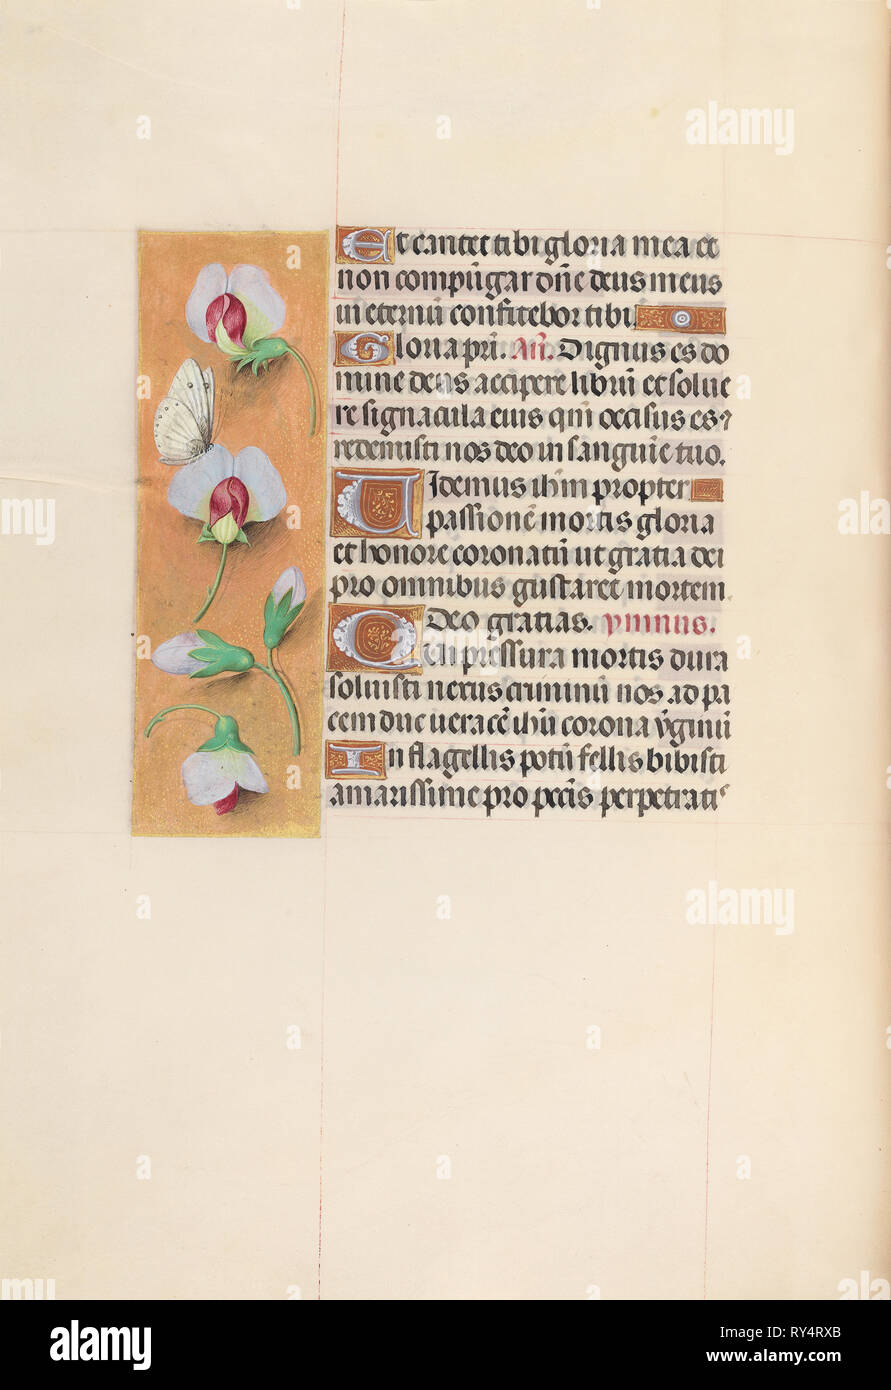 Et cantet tibi gloria mea et
non compūgar dn̄e deus meus
in eternū confitebor tibi
Gloria pri̅. An̄. Dignus es do
mine deus accipere librū et solue
re signacula eius qm̄ occisus es ⁊
redemisti nos deo in sanguine tuo.
Uidemus ih̄m propter
passionē mortis gloria
et honore coronatū ut gratia dei
pro omnibus gustaret mortem
Deo gratias. ymnus.
pressura mortis dura
soluisti nexus criminū nos ad pa
cem duc ueracē ih̄u corona v̄ginū
In flagellis potū fellis bibisti
amarissime pro pecc̄is perpetratis
alamy
a
Image ID: RY4RXB
www.alamy.com